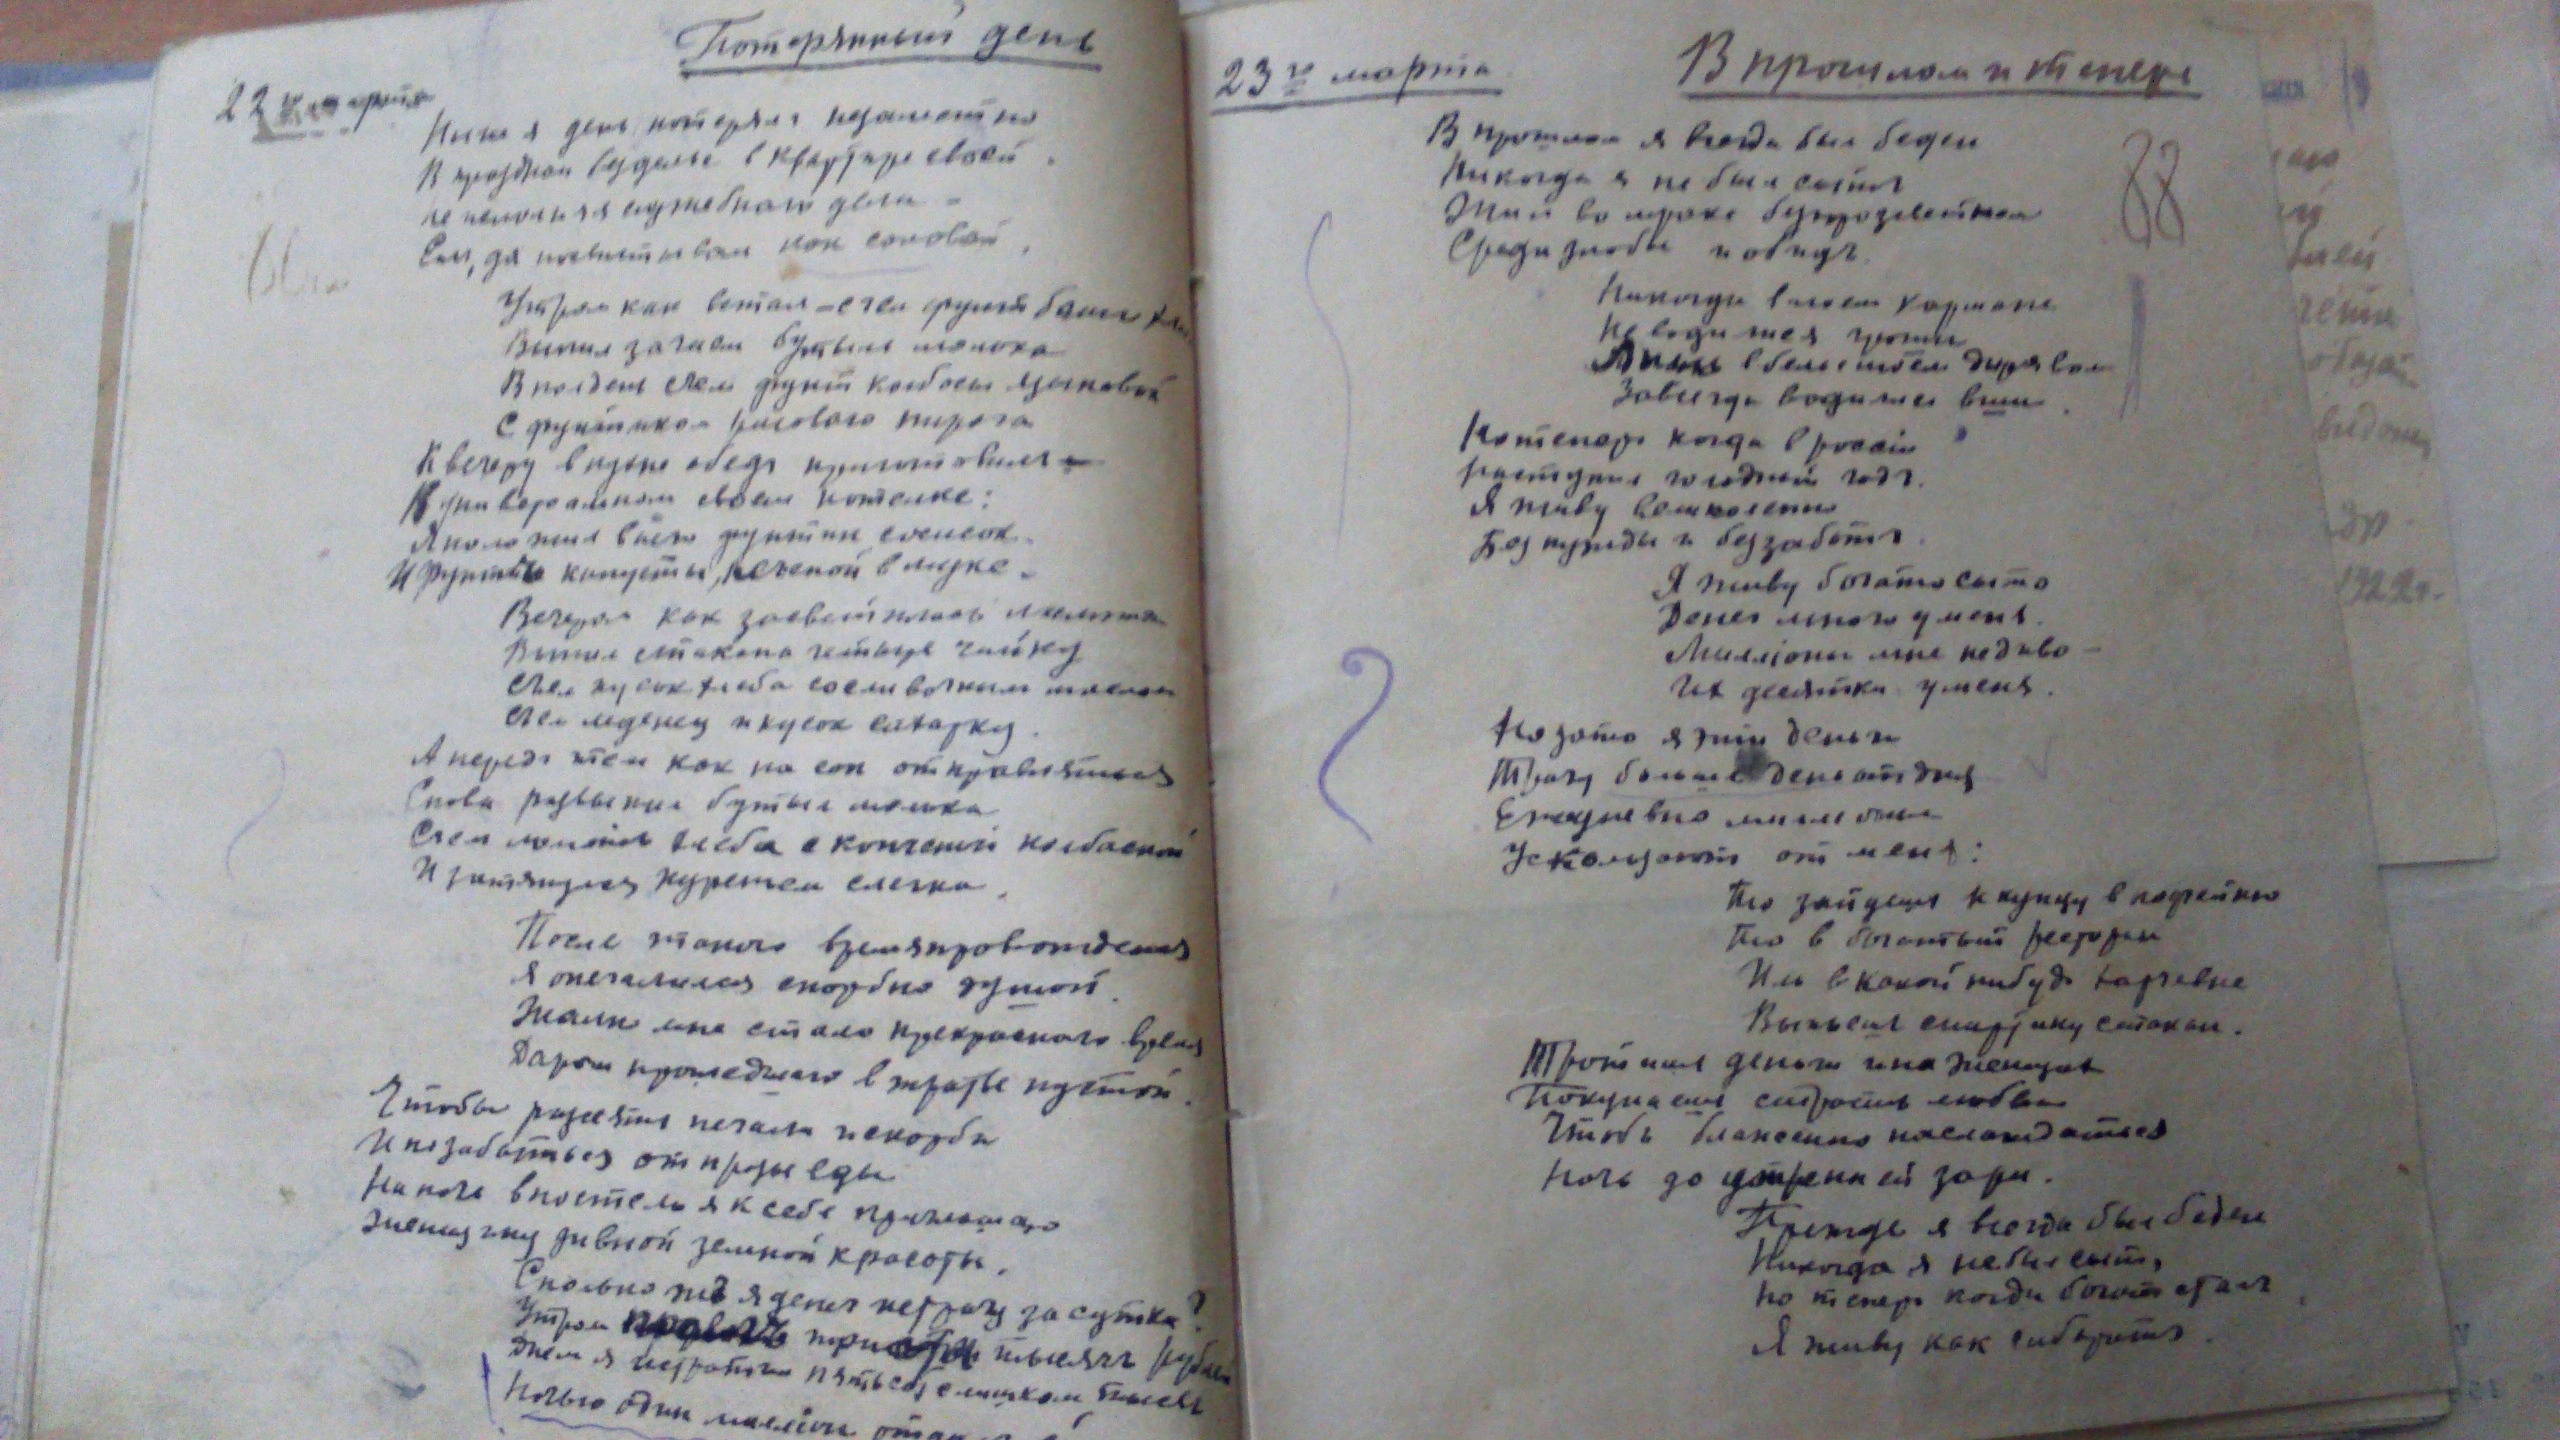 Потерянный день
22го марта
Ныне я день потерял незаметно
В праздном безделье в квартире своей.
Не исполняя служебного дела –
Ел, да посвистывал как соловей.
Утром как встал – съел фунт белого хле
Выпил затем бутыль молока
В полдень съел фунт колбасы языковой
С фунтиком рисового пирога
К вечеру в кухне обед приготовил
В универсальном своем котелке:
Положил в него фунтик сосисок
И фунт капусты, печеной в муке.
Вечером как засветилось электр
Выпил стакана четыре чайку
Съел кусок хлеба со сливочным маслом
Съел леденец и кусок сахарку.
А перед тем как на сон отправляться
Снова распил бутыль молока
Съел ломоть хлеба с копченой колбасной
И слегка.
После такого времяпровожденья
Я опечалился скорбно душой.
Жалко мне стало прекрасного время
Даром прошедшего в трате пустой.
Чтобы рассеять печали и скорби
И позабыться от прозы еды
На ночь в постель я к себе приглашаю
Женщину дивной земной красоты.
Сколько же я денег истрачу за сутки?
Утром три тысячи рублей
Днем я истратил пятьсот слишком тысяч
Ночью один миллион
23го марта
В прошлом и теперь
88
В прошлом я всегда был беден
Никогда я не был сытъ
Жил во мраке беспросветном
Среди злобы и обидъ.
Никогда в моем кармане
Не водился грошъ
Лишь в белье моем дырявом
Завсегда водились вши.
Но теперь когда в россiи
наступил голодный годъ.
Я живу великолепно
Без нужды и без заботъ.
Я живу богато сыто
Денег много у меня.
Миллiоны мне не диво –
Их десятки у меня.
Но зато я эти деньги
Трачу больше день от дня
Ежедневно миллионы
Ускользают от меня:
То зайдешь к купцу в кофейню
То в богатый ресторан
Или в какой нибудь харчевне
Выпьешь спиртику стакан.
Тратишь деньги и на женщин
Покупаешь страсть любви
Чтоб блаженно наслаждаться
Ночь до утренней зари.
Прежде я всегда был беден
Никогда я не был сыт,
Но теперь когда богат сталъ
Я живу как сибаритъ.
1922г.